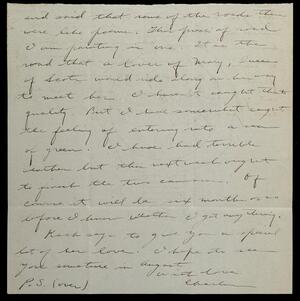 and said that some of the roads there
were like poems. This piece of road
I am painting is one. It is the
road that a lover of Mary, Queen
of Scots would ride along on his way
to meet her. I haven't caught that
quality. But I have somewhat caught
the feeling of entering into a sea
of green. I have had terrible
weather but the next week ought
to finish the two canvases. Of
course it will be six months or so
before I know whether I got anything.
says to give you a special
lot of her love. I hope to see
you sometime in August
with love
P.S. (over) Charles